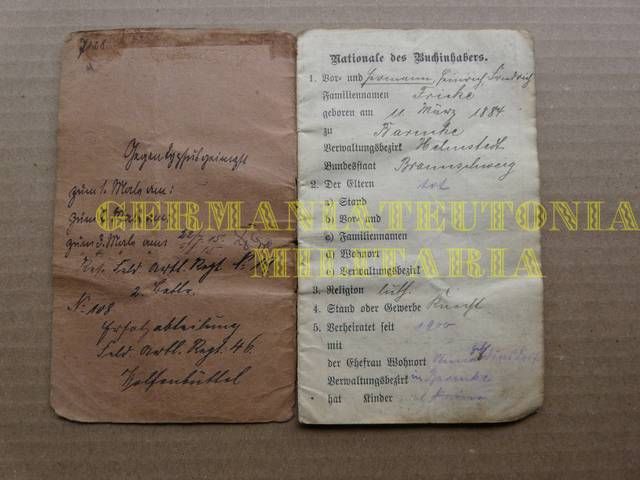 Gegen Typhus geimpft
zum 1. Male am:
zum 2. Male am:
zum 3. Male am:
Res. Feld Artl. Regt N:
2. Battr.
No 108
Ersatzabteilung
Feld. Artl. Regt. 46.
Wolfenbüttel
Nationale des Buchinhabers.
1. Vor- und Hermann, Heinrich Friedrich
Familiennamen Fricke
geboren am 11. März 1884
zu
Verwaltungsbezirk Helmstedt
Bundesstaat Braunschweig
2. Der Eltern tot
a) Stand
b) Vor- und
c) Familiennamen
d) Wohnort
e) Verwaltungsbezirk
3. Religion luth.
4. Stand oder Gewerbe Knecht
5. Verheiratet seit 1910
mit
der Ehefrau Wohnort
Verwaltungsbezirk
hat Kinder
GERMANIA TEUTONIA
MILITARIA